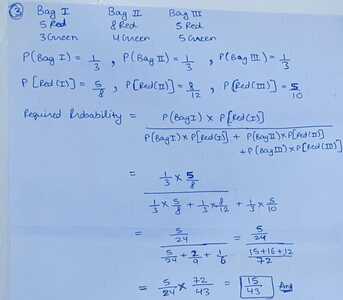 ③ Bag I Bag II Bag III
5 Red 8 Red 5 Red
3 Green 4 Green 5 Green
P(Bag I) = 1/3 , P(Bag II) = 1/3 , P(Bag III) = 1/3
P[Red(I)] = 5/8 , P[Red(II)] = 8/12 , P[Red(III)] = 5/10
Required Probability = P(Bag I) × P[Red(I)]
P(Bag I) × P[Red(I)] + P(Bag II) × P[Red(II)]
+ P(Bag III) × P[Red(III)]
= 1/3 × 5/8
1/3 × 5/8 + 1/3 × 8/12 + 1/3 × 5/10
= 5/24 = 5/24
5/24 + 2/9 + 1/6 15+16+12/72
= 5/24 × 72/43 = 15/43 Ans